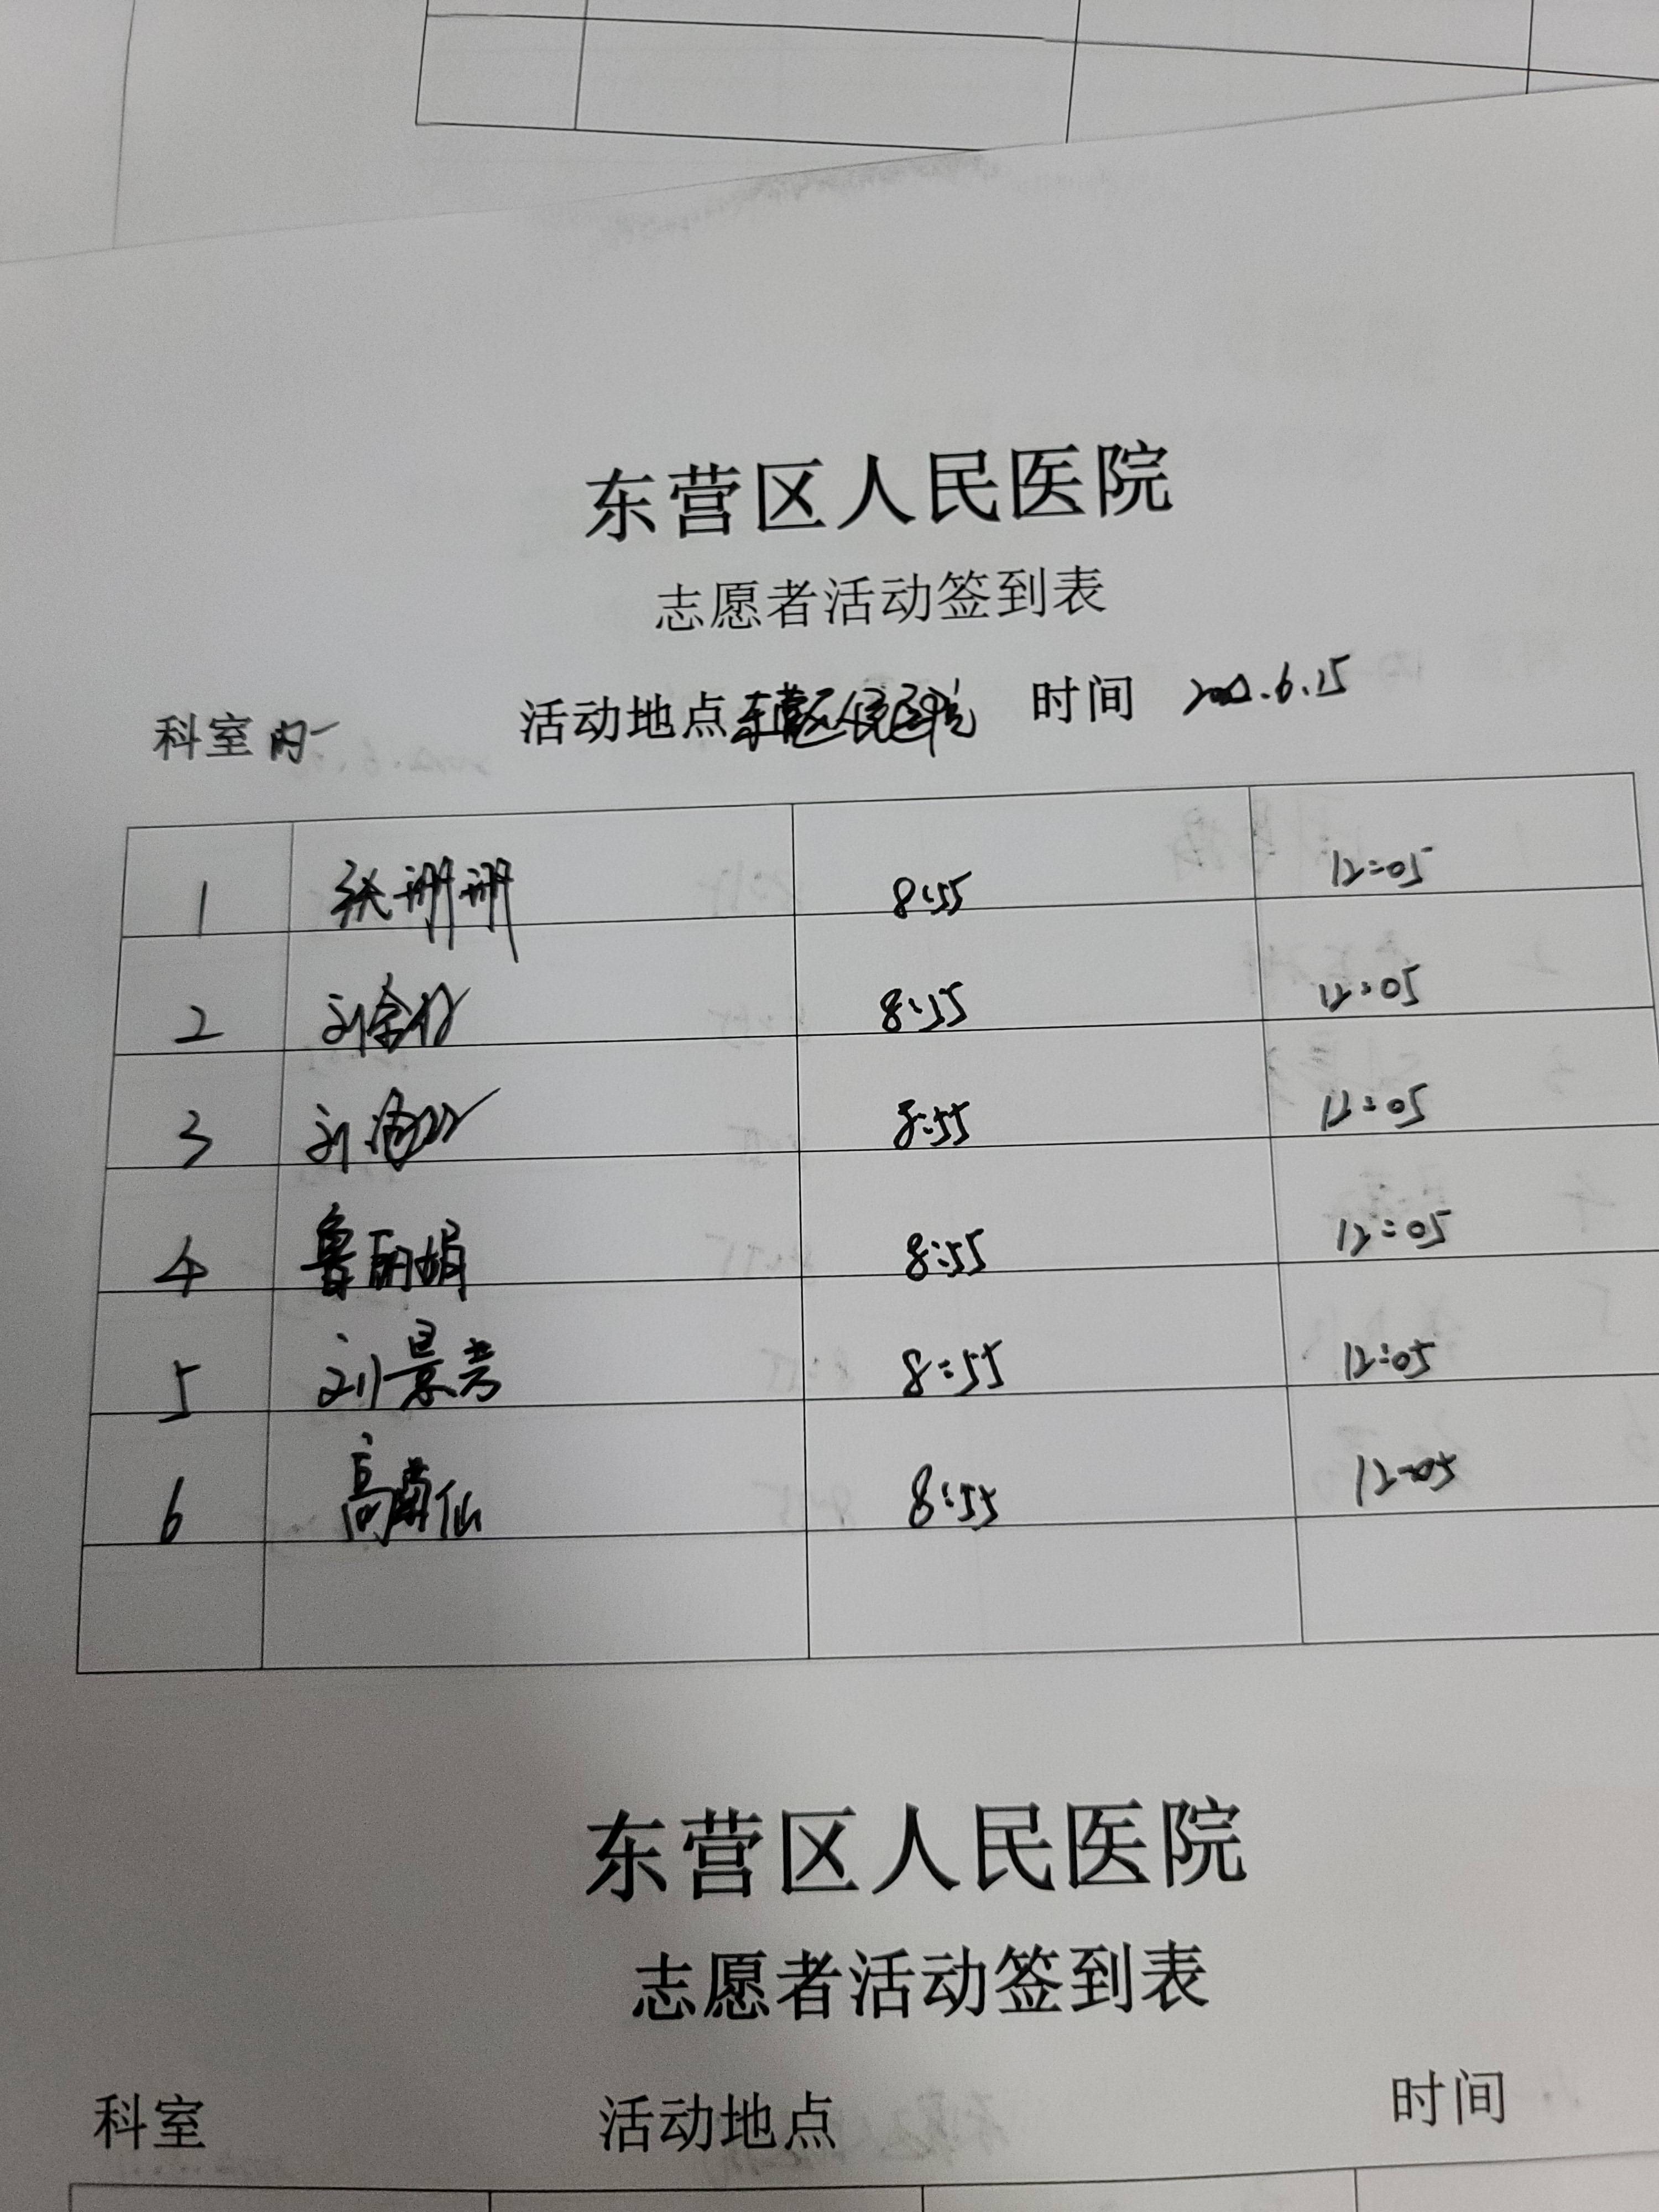 东营区人民医院
志愿者活动签到表
科室 内一 活动地点 东营区人民医院 时间 2022.6.15
1 张珊珊 8:55 12:05
2 刘 8:55 12:05
3 刘 8:55 12:05
4 鲁丽娟 8:55 12:05
5 刘景芳 8:55 12:05
6 高菊仙 8:55 12:05
东营区人民医院
志愿者活动签到表
科室 活动地点 时间